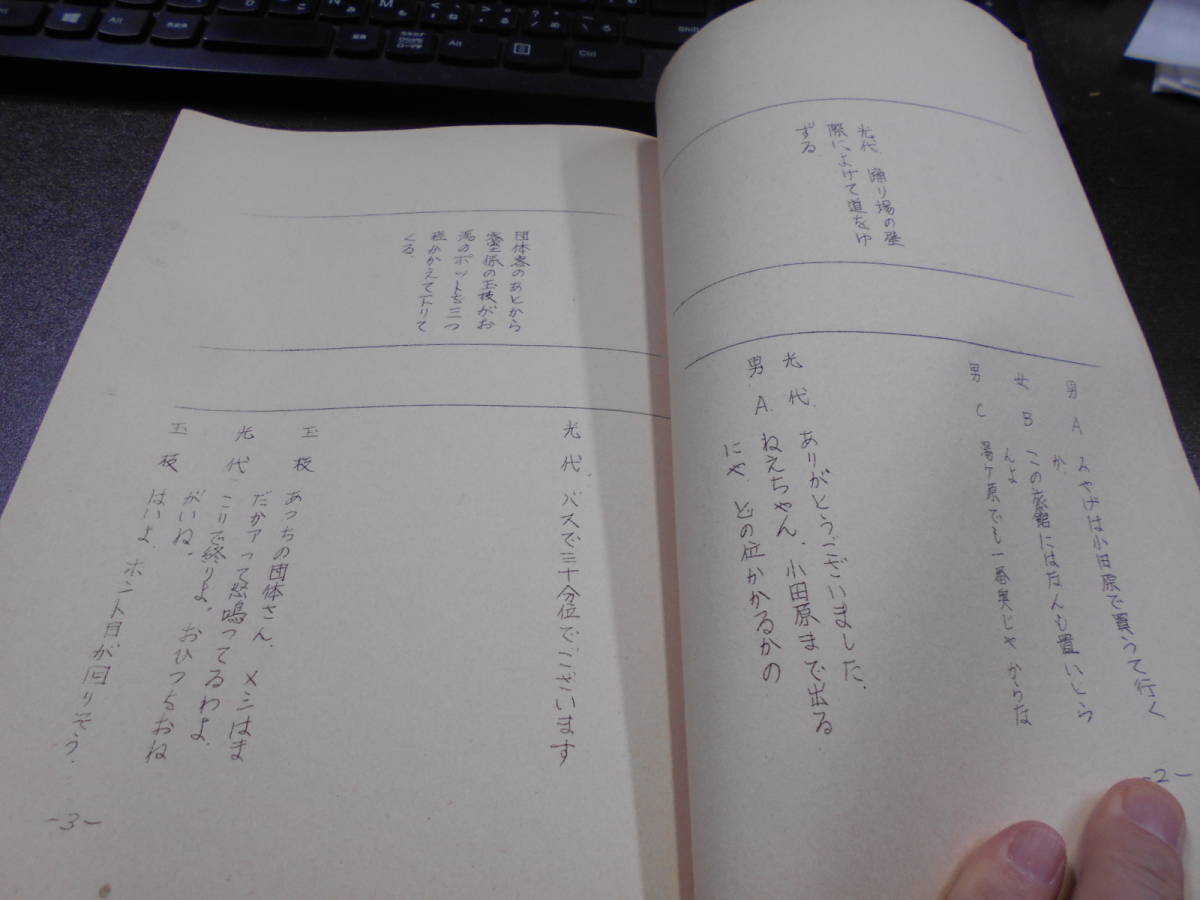 男 A みやげは小田原で買うて行く
か.
女 B この旅館にはなんも置いとら
んよ
男 C 湯ケ原でも一番奥じゃからな
光代 踊り場の壁
際によけて道をゆ
ずる.
光代. ありがとうございました.
男 A. ねえちゃん. 小田原まで出る
にゃ. どの位かかるかの
-2-
光代. バスで三十分位でございます
団体客のあとから
客室係の玉枝がお
湯のポットを三つ
程かかえて下りて
くる.
玉枝 あっちの団体さん. メシはま
だかァって怒鳴ってるわよ.
光代 こゝで終りよ. おひつもおね
がいね.
玉枝 はいよ. ホント目が回りそう.
-3-
Alt
無変換
変換
カタカナ
ひらがな
ローマ字
Alt
Ctrl
Shift
N
M